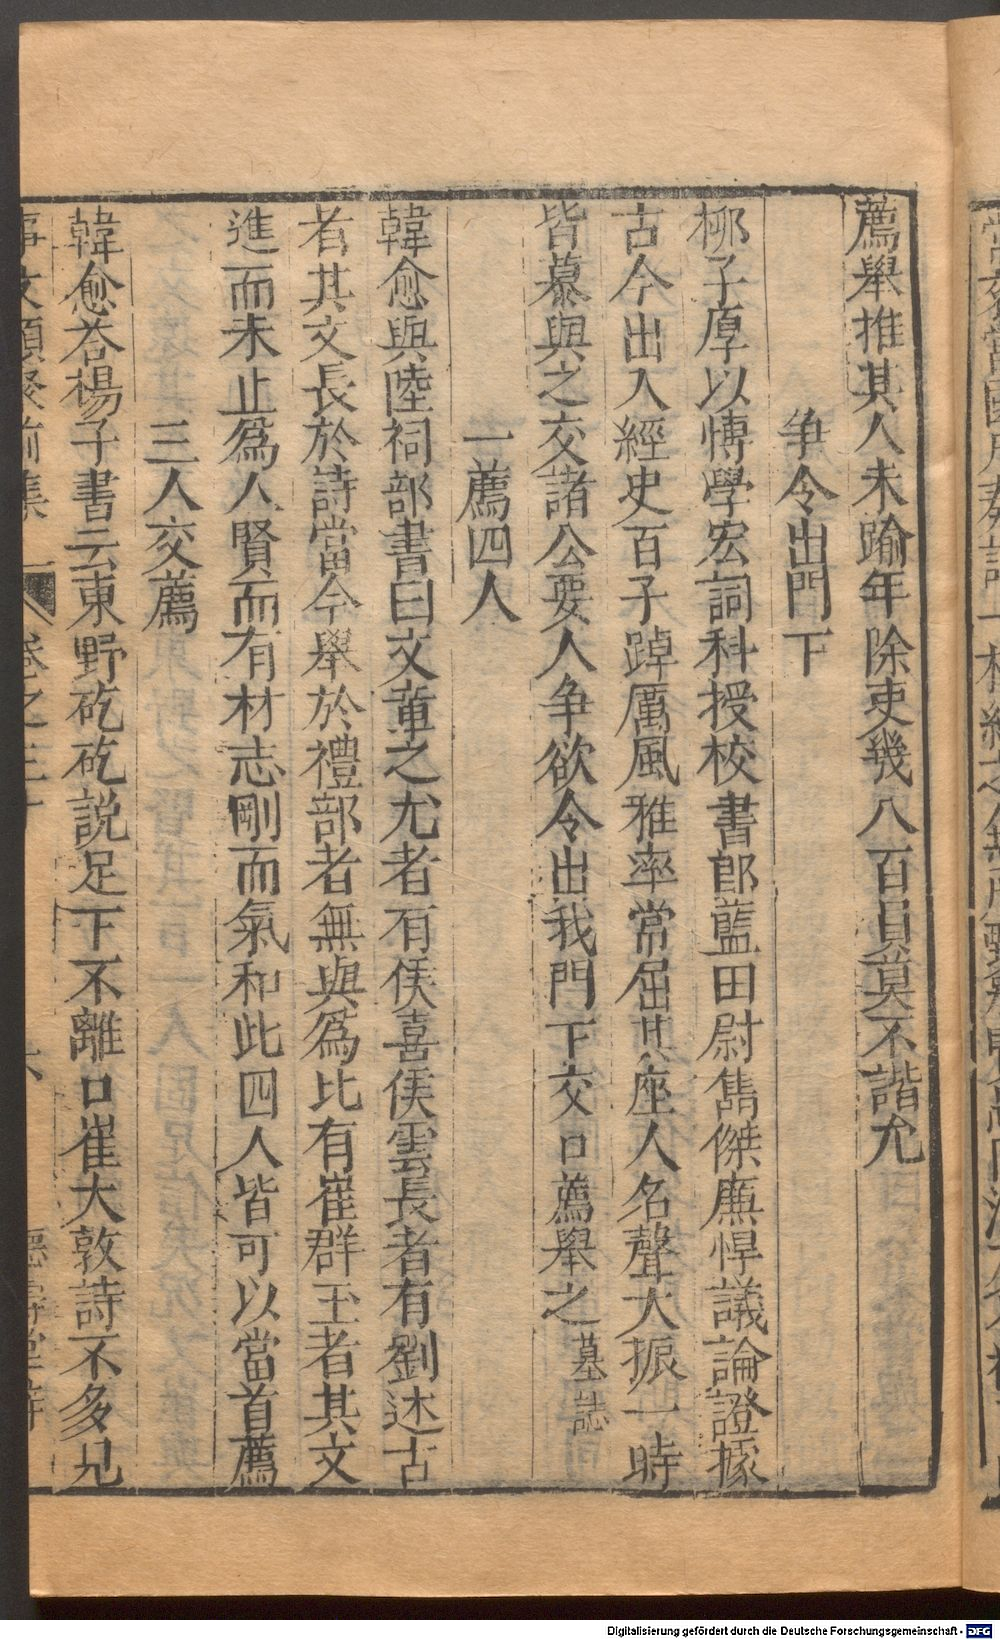 薦舉推其人未踰年除吏幾八百員莫不諧允
争令出門下
栁子厚以愽學宏詞科授校書郎藍田尉雋傑廉悍議論證據
古今出入經史百子踔厲風雅率常屈其座人名聲大振一時
皆慕與之交諸公要人争欲令出我門下交口薦舉之墓誌
一薦四人
韓愈與陸祠部書曰文章之尤者有侯喜侯雲長者有劉述古
者其文長於詩當今舉於禮部者無與爲比有崔群玉者其文
進而未止爲人賢而有材志剛而氣和此四人皆可以當首薦
三人交薦
韓愈荅楊子書云東野矻矻説足下不離口崔大敦詩不多見
事文類聚前集 卷之三十
Digitalisierung gefördert durch die Deutsche Forschungsgemeinschaft - DFG